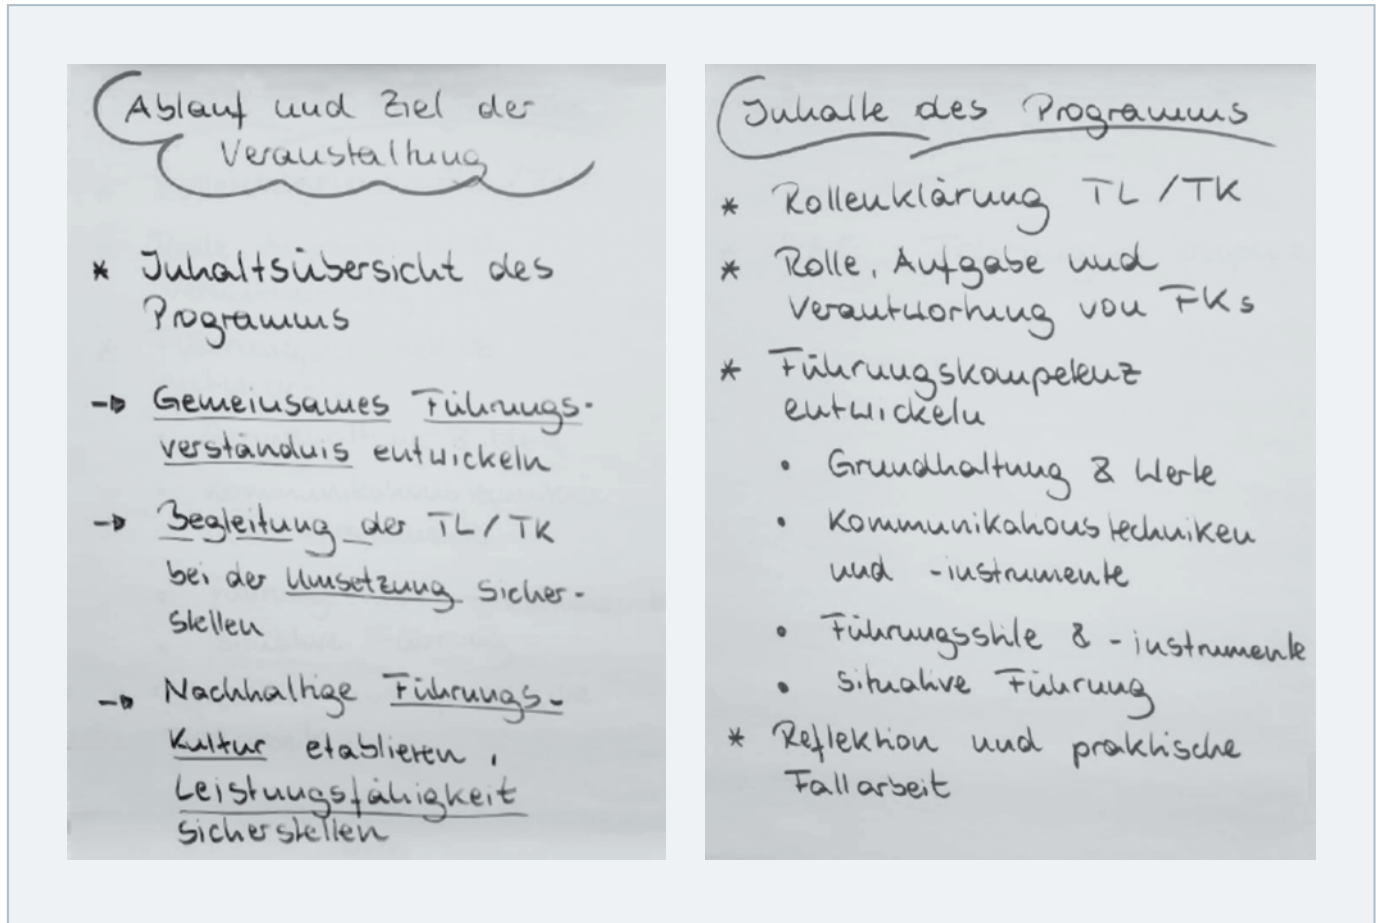 Ablauf und Ziel der
Veranstaltung
* Inhaltsübersicht des
Programms
→ Gemeinsames Führungs-
verständnis entwickeln
→ Begleitung der TL/TK
bei der Umsetzung sicher-
stellen
→ Nachhaltige Führungs-
Kultur etablieren,
Leistungsfähigkeit
sicherstellen
Inhalte des Programms
* Rollenklärung TL/TK
* Rolle, Aufgabe und
Verantwortung von FKs
* Führungskompetenz
entwickeln
• Grundhaltung & Werte
• Kommunikationstechniken
und -instrumente
• Führungsstile & -instrumente
• situative Führung
* Reflektion und praktische
Fallarbeit